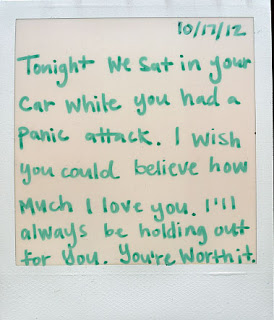 10/17/12
Tonight We Sat in your
Car while you had a
panic attack. I wish
you could believe how
Much I love you. I'll
always be holding out
for You. You're Worth it.